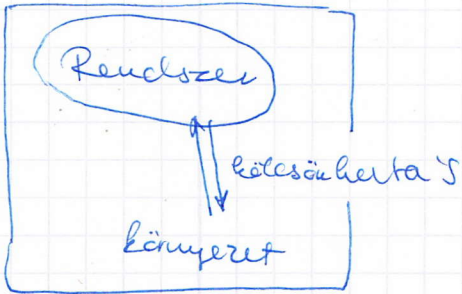 Rendszer
kölcsönhatás
környezet